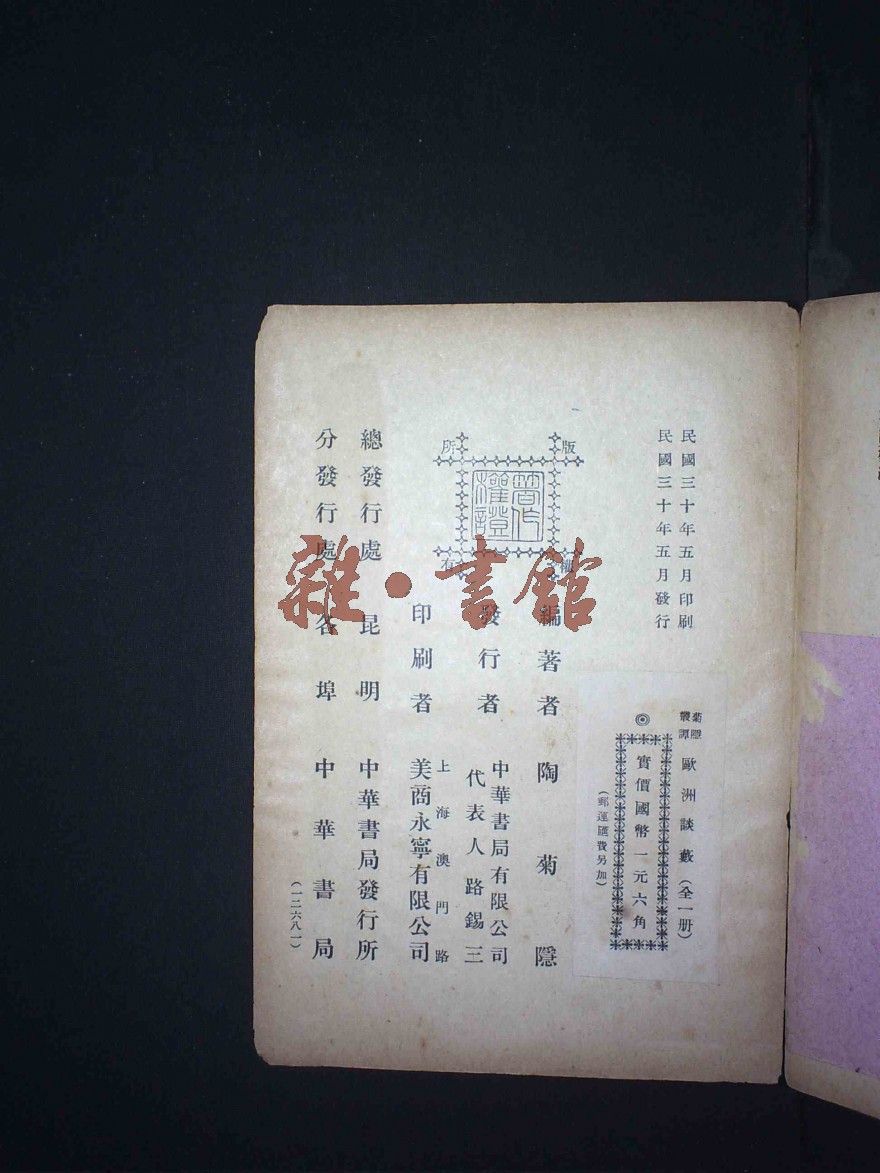 民國三十年五月印刷
民國三十年五月發行
菊隱叢譚 歐洲談藪（全一册）
◎實價國幣一元六角
（郵運匯費另加）
版權所有
著作權證
編著者 陶菊隱
發行者 中華書局有限公司
代表人路錫三
印刷者 上海澳門路
美商永寧有限公司
總發行處 昆明 中華書局發行所
分發行處 各埠 中華書局
（一二六八一）
雜·書館